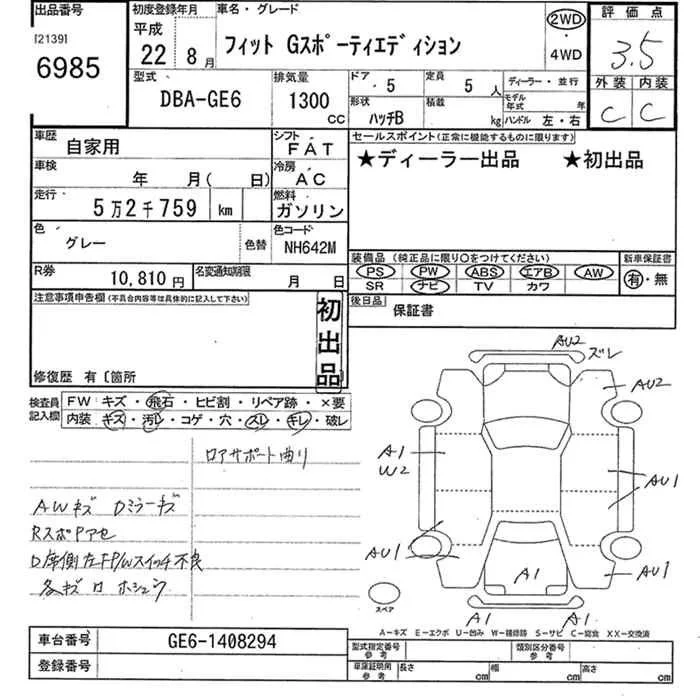 出品番号
[2139]
6985
初度登録年月
平成
22 8月
車名・グレード
フィット Gスポーティエディション
2WD
・
4WD
評価点
3.5
外装 内装
C C
型式
DBA-GE6
排気量
1300
CC
ドア 5
定員 5人
ディーラー・並行
形状 ハッチB
積載 kg
モデル年式 年
ハンドル 左・右
車歴 自家用
シフト FAT
車検 年 月( 日)
冷房 AC
走行 5万2千759 km
燃料 ガソリン
色 グレー
色替
色コード NH642M
R券 10,810円
名変通知期限 月 日
セールスポイント(正常に機能するものに限ります)
★ディーラー出品 ★初出品
装備品(純正品に限り○をつけてください)
PS PW ABS エアB AW
SR ナビ TV カワ
新車保証書
有・無
後日品 保証書
注意事項申告欄(不具合内容等は具体的に記入して下さい)
初出品
修復歴 有〔箇所
検査員記入欄
FW キズ・飛石・ヒビ割・リペア跡・×要
内装 キズ・汚レ・コゲ・穴・スレ・キレ・破レ
ロアサポート曲り
AWキズ Dミラーキズ
RスポPアセ
D席側左FP/Wスイッチ不良
AU2
ズレ
AU2
A1
W2
AU1
AU1
AU1
A1
A1
A1
スペア
A-キズ E-エクボ U-凹み W-補修跡 S-サビ C-腐食 XX-交換済
車台番号 GE6-1408294
登録番号
型式指定番号
参考
類別区分番号
参考
車庫証明用
参考
長さ cm
幅 cm
高さ cm